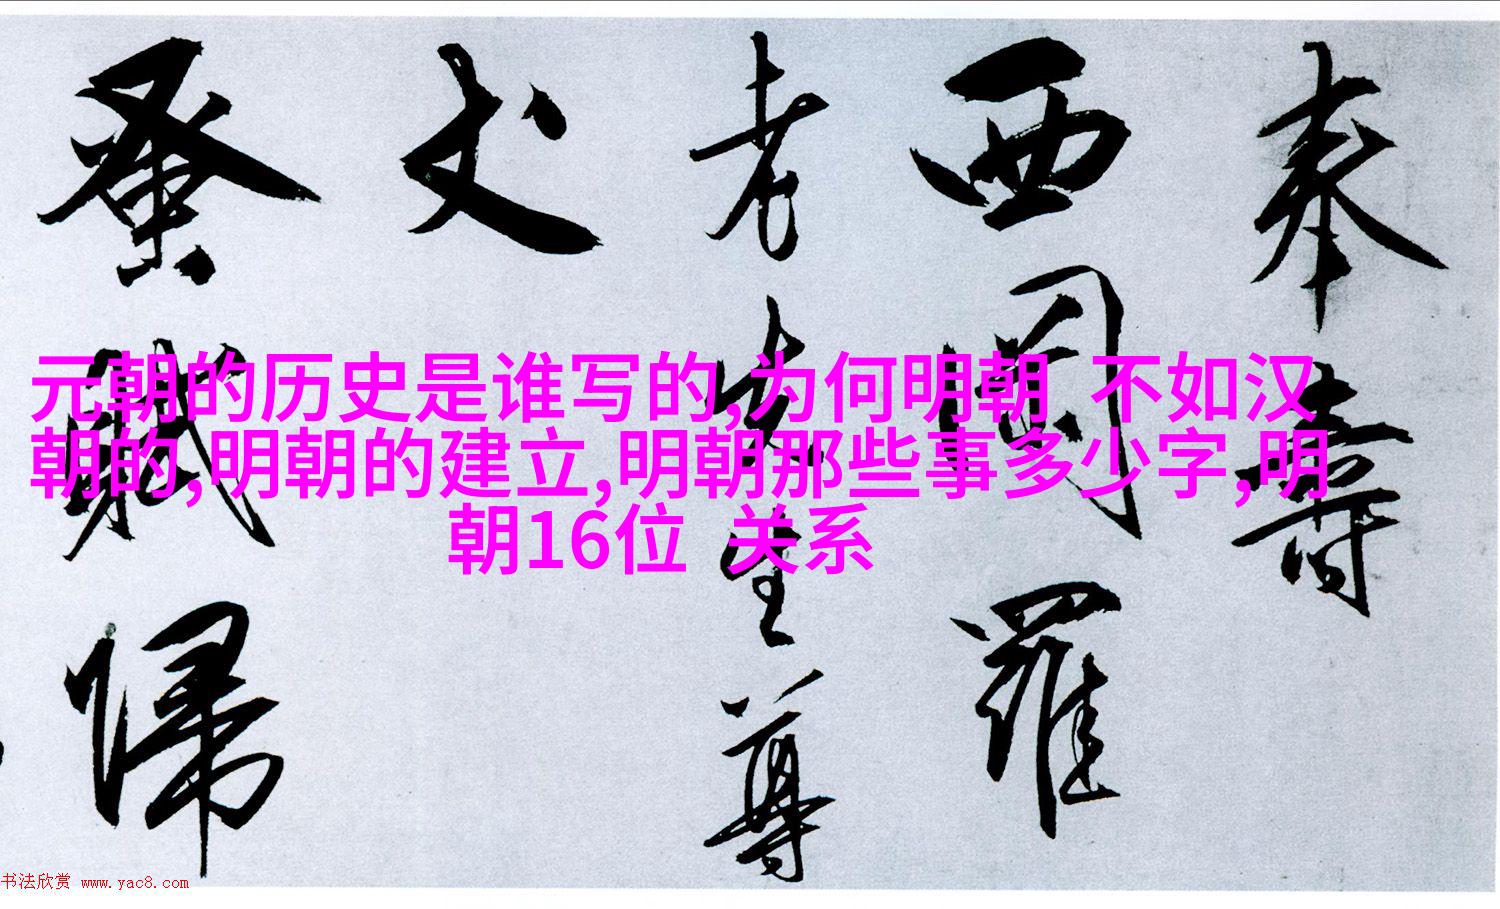 奉壽
西園羅
老先生尊
丈
蚤賦歸
元朝的历史是谁写的,为何明朝 不如汉
朝的,明朝的建立,明朝那些事多少字,明
朝16位 关系
书法欣赏 www.yac8.com